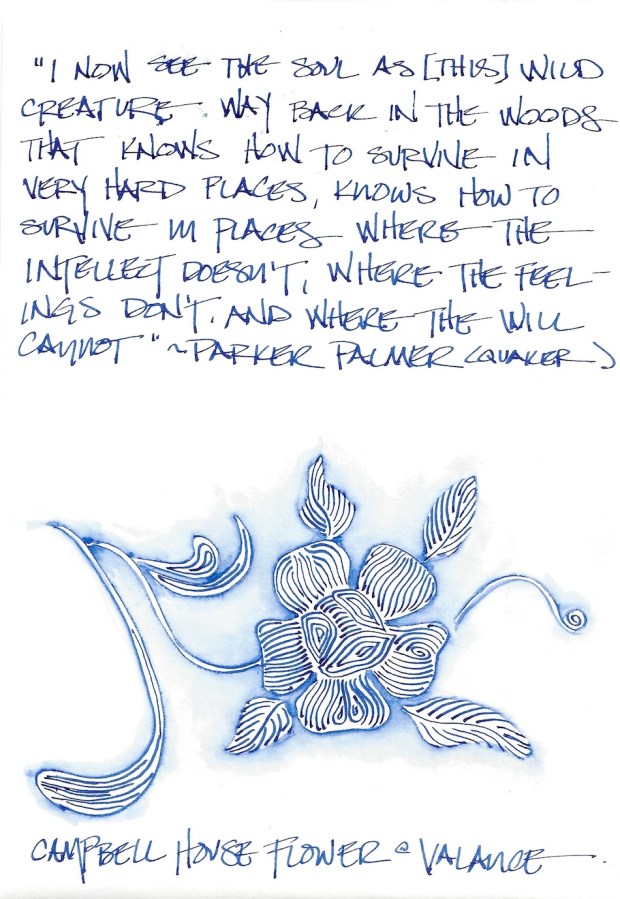 "I NOW SEE THE SOUL AS [THIS] WILD
CREATURE WAY BACK IN THE WOODS
THAT KNOWS HOW TO SURVIVE IN
VERY HARD PLACES, KNOWS HOW TO
SURVIVE IN PLACES WHERE THE
INTELLECT DOESN'T, WHERE THE FEEL-
INGS DON'T. AND WHERE THE WILL
CANNOT" ~PARKER PALMER (QUAKER)
CAMPBELL HOUSE FLOWER @ VALANCE.